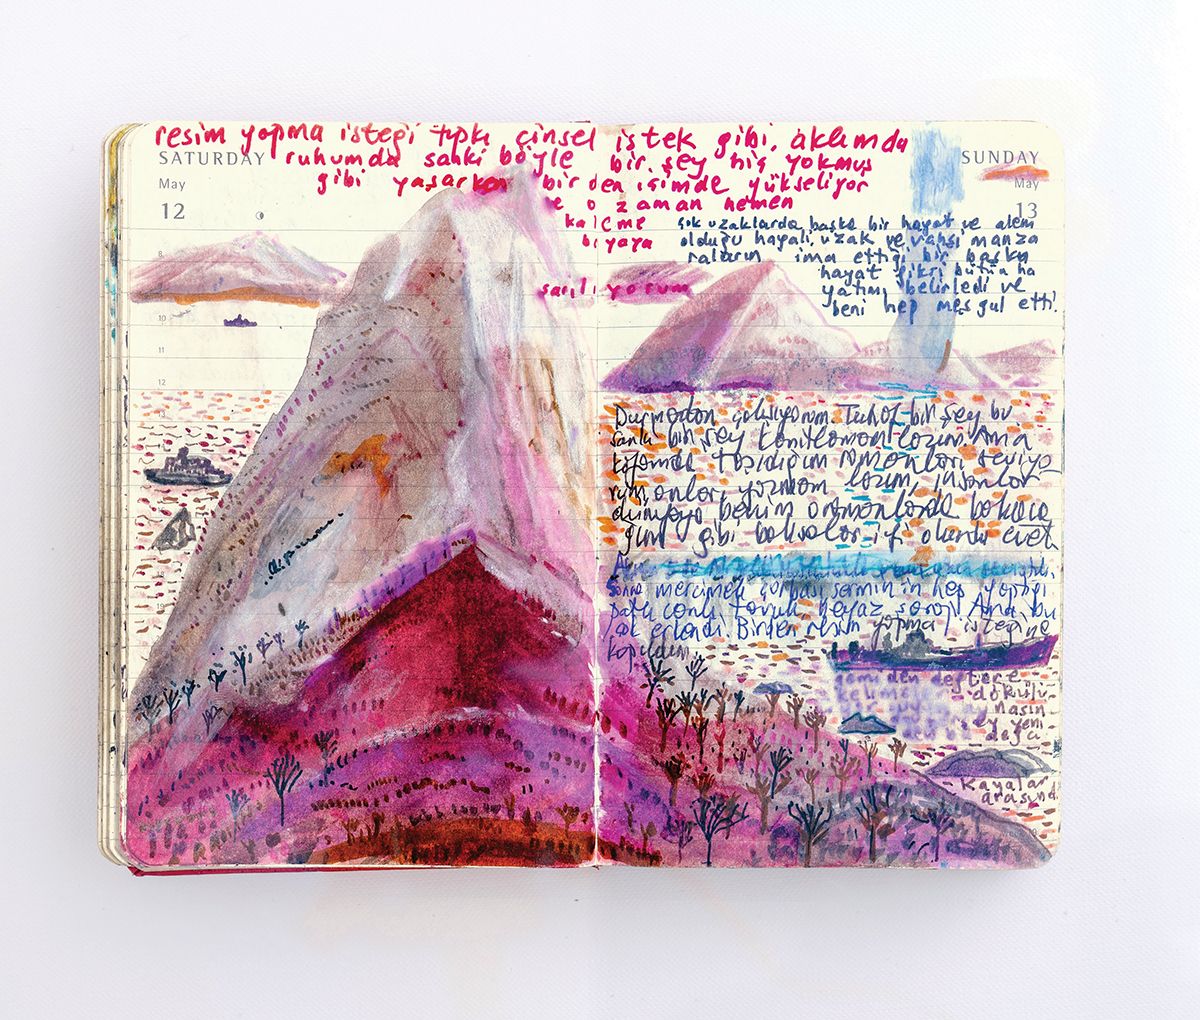 resim yapma isteği tıpkı cinsel istek gibi. aklımda
SATURDAY
ruhumda sanki böyle bir şey hiç yokmuş
May
gibi yaşarken birden içimde yükseliyor
12
ve o zaman hemen
kaleme
boyaya
sarılıyorum
8
10
11
12
13
18
19
SUNDAY
May
13
çok uzaklarda başka bir hayat ve alem
olduğu hayali, uzak ve vahşi manza
raların ima ettiği bir başka
hayat fikri bütün ha
yatımı belirledi ve
beni hep meşgul etti.
Durmadan çalışıyorum. Tuhaf bir şey bu
sanki bir şey kanıtlamam lazım. Ama
kafamda taşıdığım romanları seviyo
rum, onları yazmam lazım, insanlar
dünyaya benim romanlarıma bakaca
ğım gibi baksalar iyi olurdu evet
Sonra mercimek çorbası
hep yaptığı
patlıcanlı tavuk beyaz
Ama bu
çok erkendi. Birden resim yapma isteğine
kapıldım.
gemiden deftere
dökülü
yeni
Kayalar
arasında